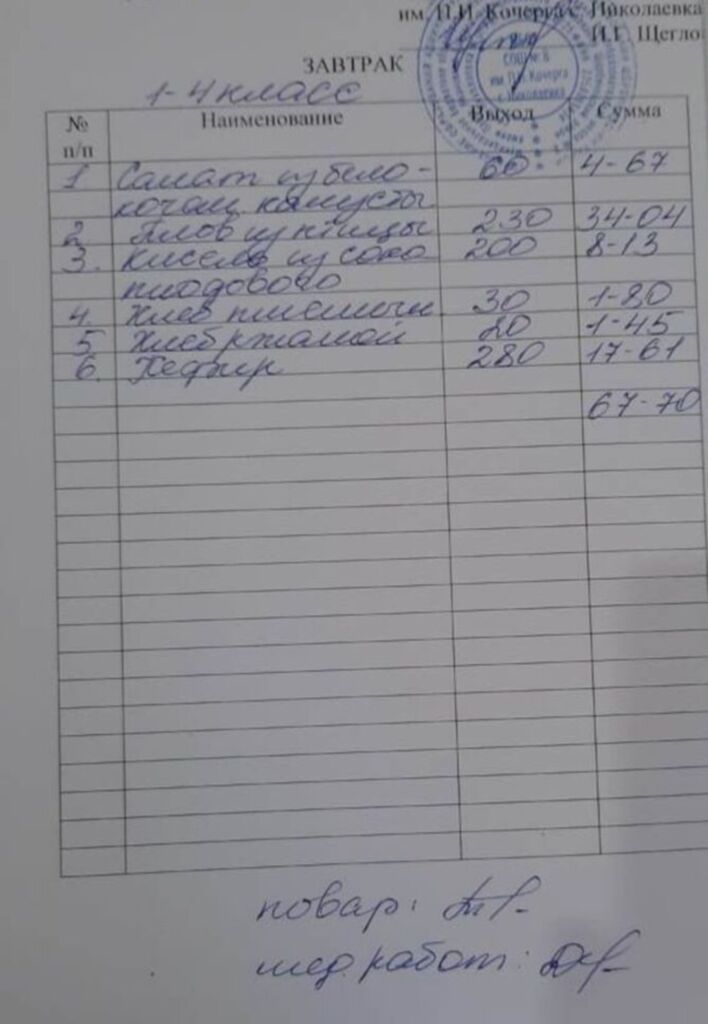 им. П.И. Кочерга с. Николаевка
И.Г. Щегло
СОШ № 8
им П.И. Кочерга
с. Николаевка
ЗАВТРАК
1-4 класс
№ п/п Наименование Выход Сумма
1 Салат из бело- 60 4-67
кочан. капусты
2 Плов из птицы 230 34-04
3. Кисель из сока 200 8-13
плодового
4. Хлеб пшеничн 30 1-80
5 Хлеб ржаной 20 1-45
6. Кефир 280 17-61
67-70
повар:
мед. работ: